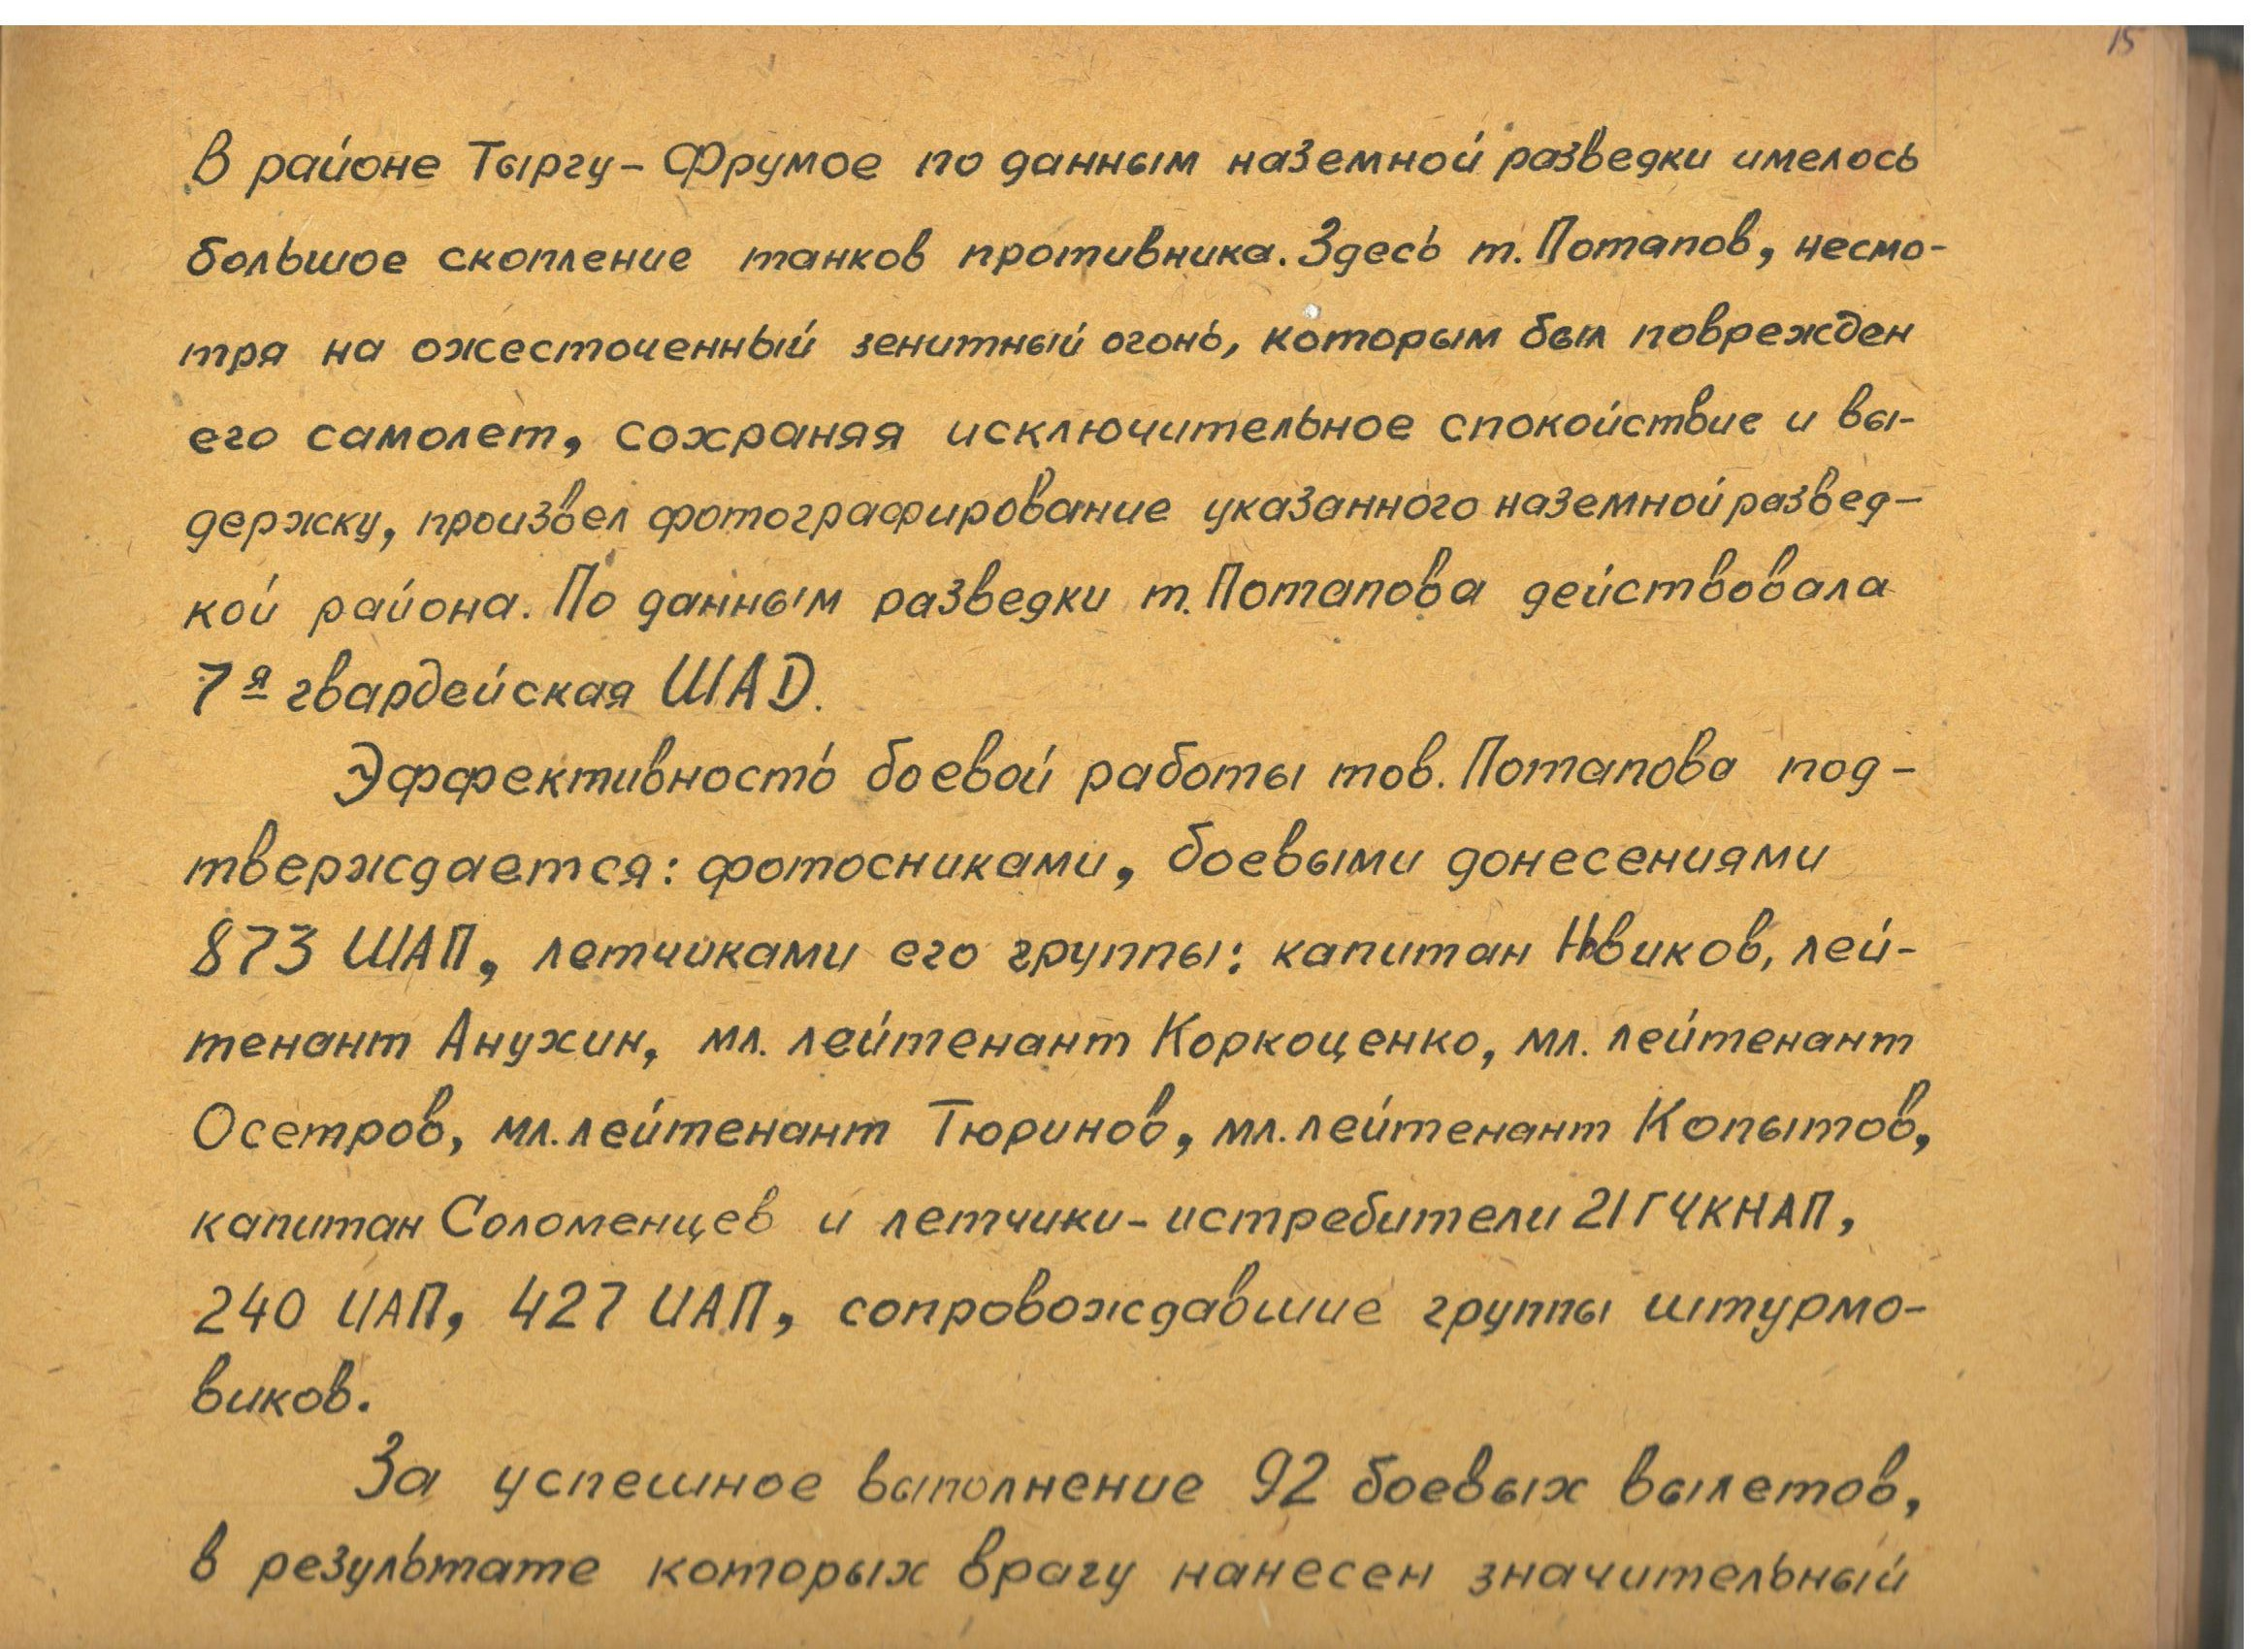 15
В районе Тыргу-Фрумое по данным наземной разведки имелось
большое скопление танков противника. Здесь т. Потапов, несмо-
тря на ожесточенный зенитный огонь, которым был поврежден
его самолет, сохраняя исключительное спокойствие и вы-
держку, произвел фотографирование указанного наземной развед-
кой района. По данным разведки т. Потапова действовала
7я гвардейская ШАД.
Эффективность боевой работы тов. Потапова под-
тверждается: фотосниками, боевыми донесениями
873 ШАП, летчиками его группы: капитан Нвиков, лей-
тенант Анухин, мл. лейтенант Коркоценко, мл. лейтенант
Осетров, мл. лейтенант Тюринов, мл. лейтенант Копытов,
капитан Соломенцев и летчики-истребители 21 ГЧКНАП,
240 ИАП, 427 ИАП, сопровождавшие группы штурмо-
виков.
За успешное выполнение 92 боевых вылетов,
в результате которых врагу нанесен значительный